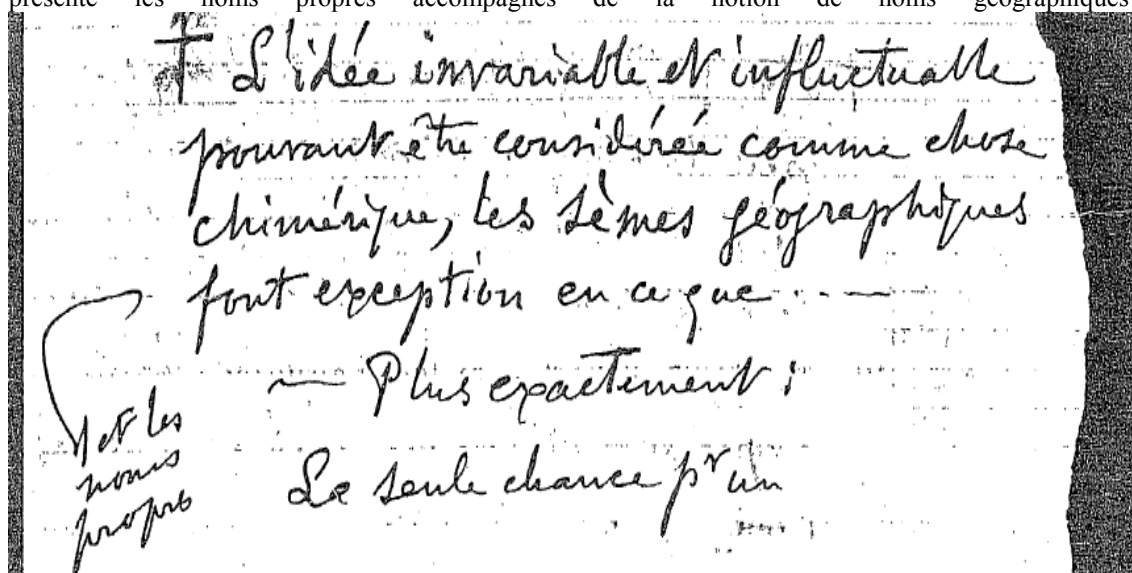 présente les noms propres accompagnés de la notion de noms géographiques
L'idée invariable et influctuable
pouvant être considérée comme chose
chimérique, les sèmes géographiques
font exception en ce que . . —
— Plus exactement :
et les
noms
propres
La seule chance pr un